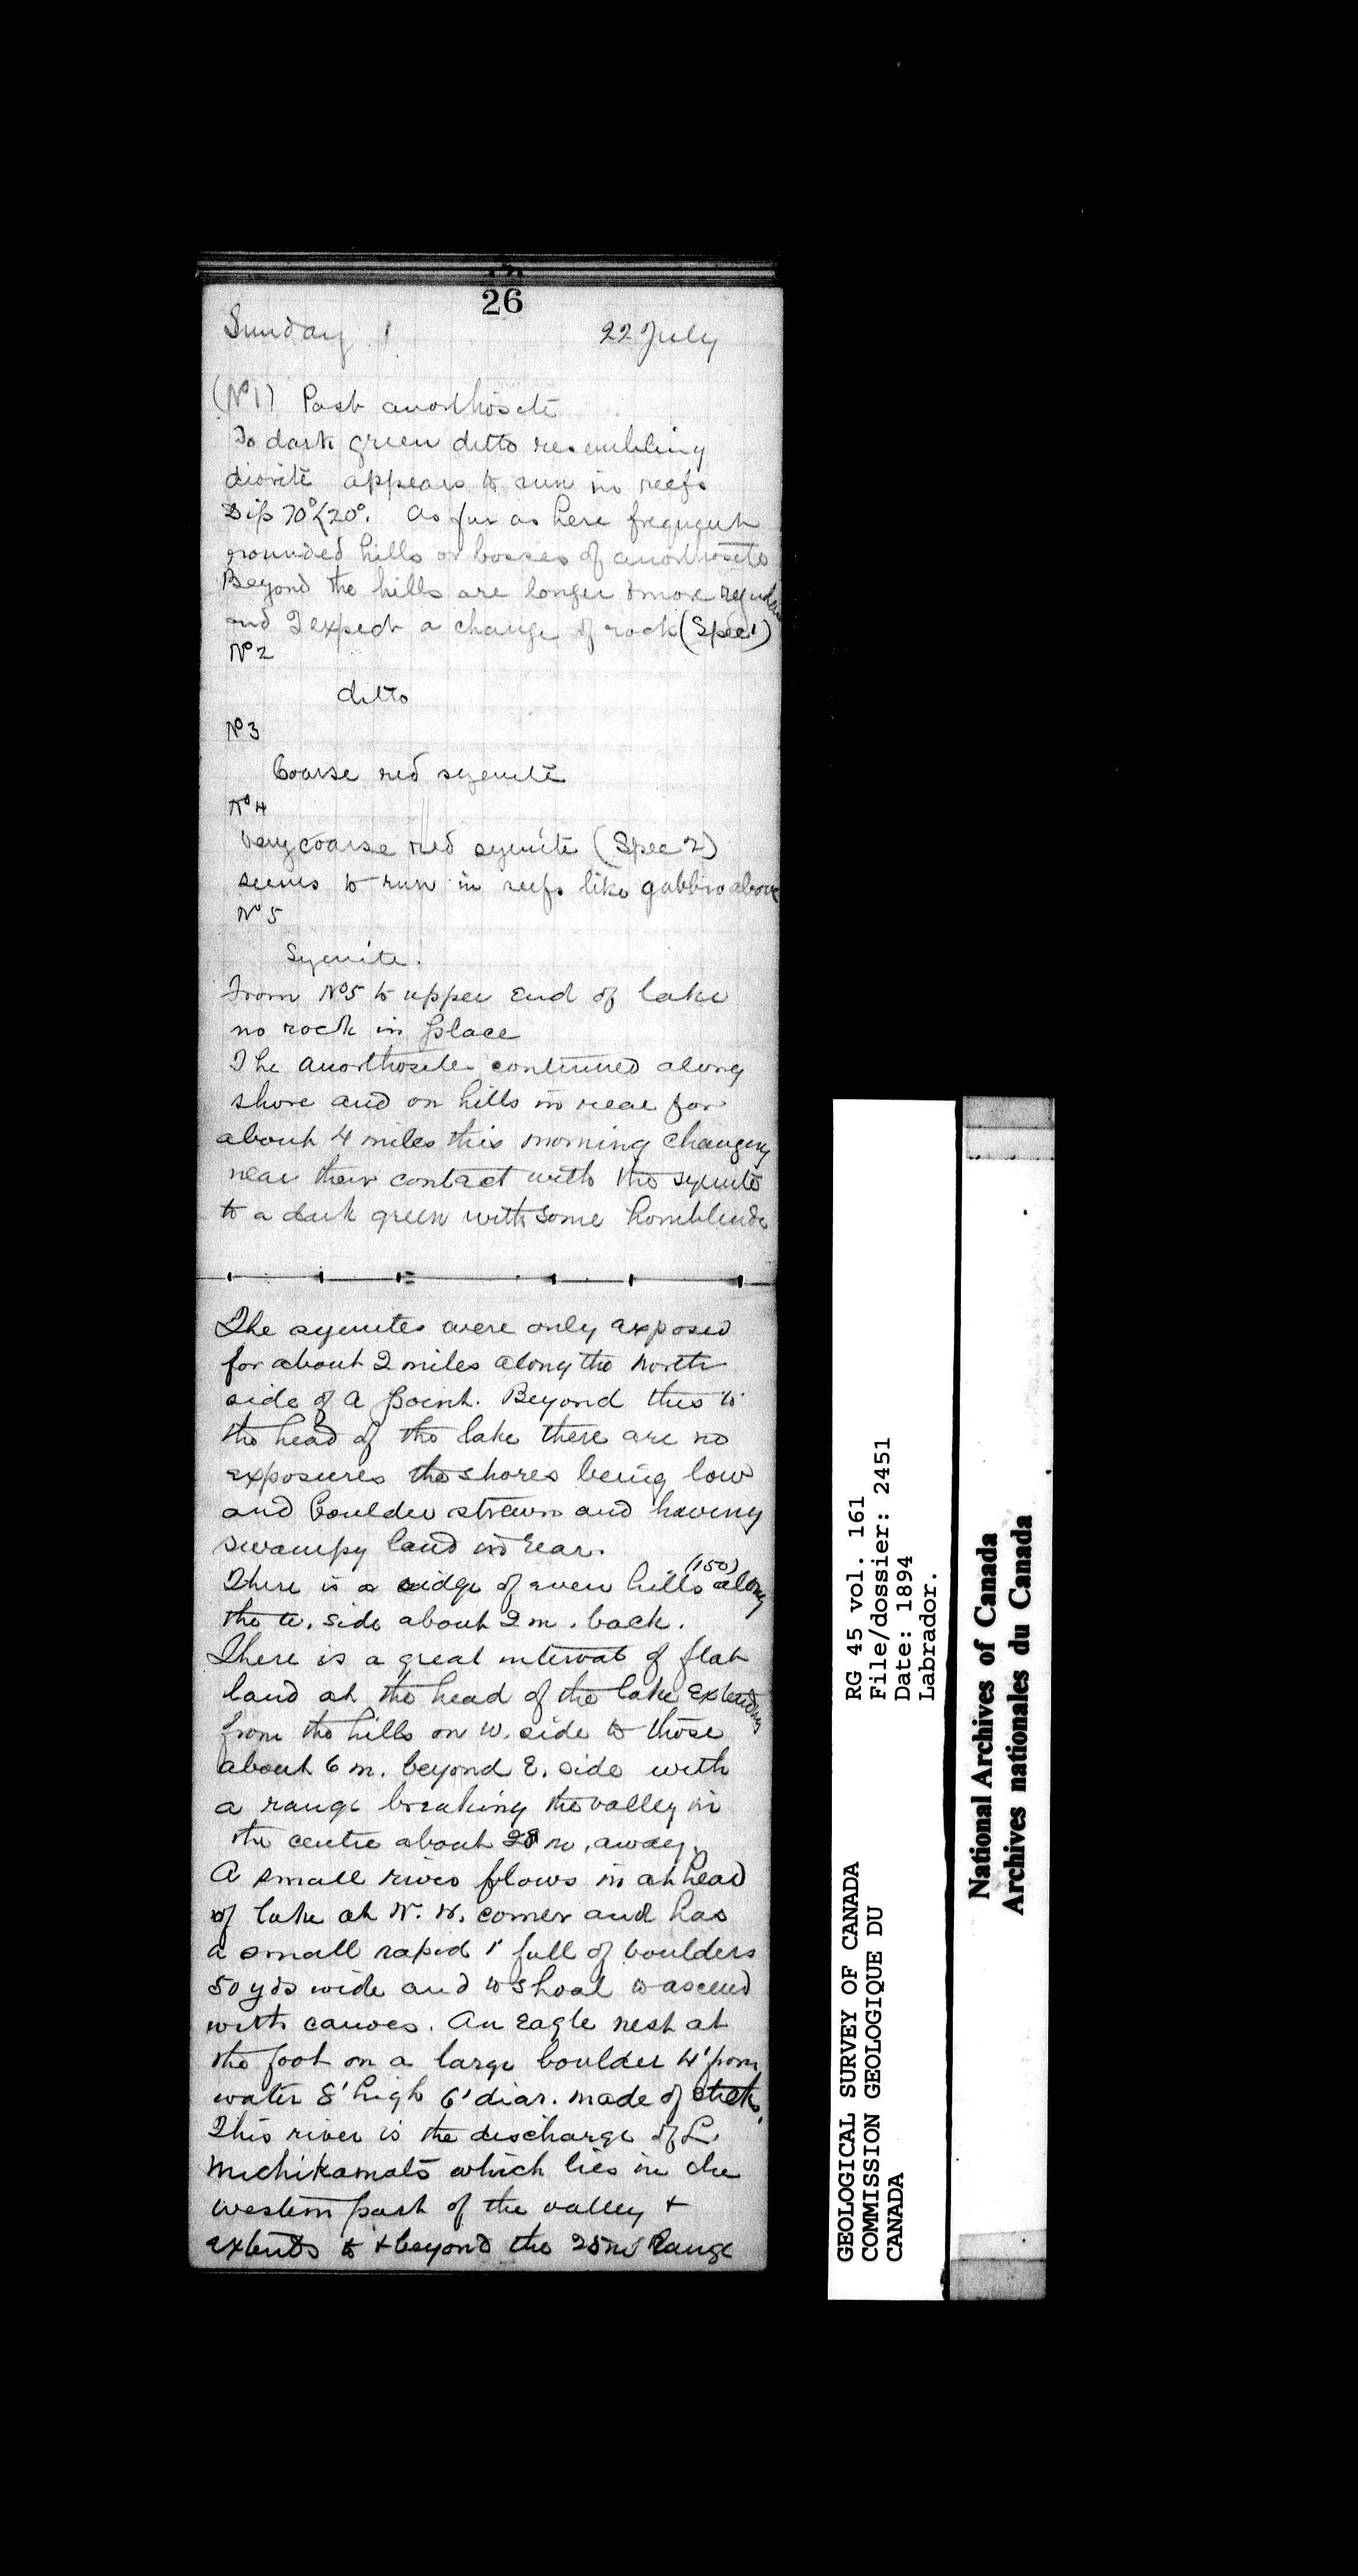 26
Sunday 22 July
(No 1) Past anorthosite
To dark green ditto resembling
diorite appears to run in reefs
Dip 70°<20°. As far as here frequent
rounded hills or bosses of anorthosite
Beyond the hills are longer & more regular
and I expect a change of rock (Spec 1)
No 2
ditto
No 3
Coarse red syenite
No 4
Very coarse red syenite (Spec 2)
seems to run in reefs like gabbro above
No 5
Syenite.
From No 5 to upper end of lake
no rock in place
The anorthosite continued along
shore and on hills in rear for
about 4 miles this morning changing
near their contact with the syenite
to a dark green with some hornblende
The syenites were only exposed
for about 2 miles along the north
side of a point. Beyond this to
the head of the lake there are no
exposures the shores being low
and boulder strewn and having
swampy land in rear.
There is a ridge of even hills (150) along
the w. side about 2 m. back.
There is a great interval of flat
land at the head of the lake extending
from the hills on w. side to those
about 6 m. beyond E. side with
a range breaking the valley in
the centre about m. away.
A small river flows in at head
of lake at N. W. corner and has
a small rapid 1' fall of boulders
50 yds wide and to shoal to ascend
with canoes. An Eagle nest at
the foot on a large boulder 4' from
water 8' high 6' diar. made of sticks.
This river is the discharge of L.
Michikamats which lies in the
western part of the valley +
extends to + beyond the 25m Range
GEOLOGICAL SURVEY OF CANADA
COMMISSION GEOLOGIQUE DU
CANADA
RG 45 vol. 161
File/dossier: 2451
Date: 1894
Labrador.
National Archives of Canada
Archives nationales du Canada